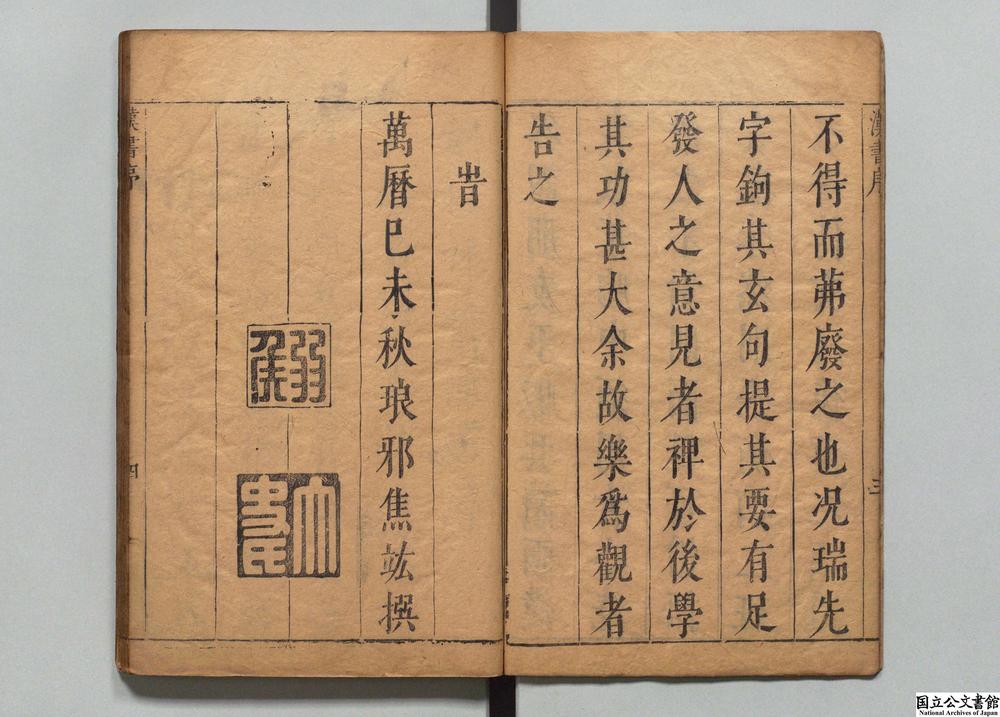 漢書序 三
不得而茀廢之也况瑞先
字鉤其玄句提其要有足
發人之意見者禆於後學
其功甚大余故樂爲觀者
告之
旹
萬暦巳未秋琅邪焦竑撰
弱侯
太史氏
漢書序 四
国立公文書館
National Archives of Japan